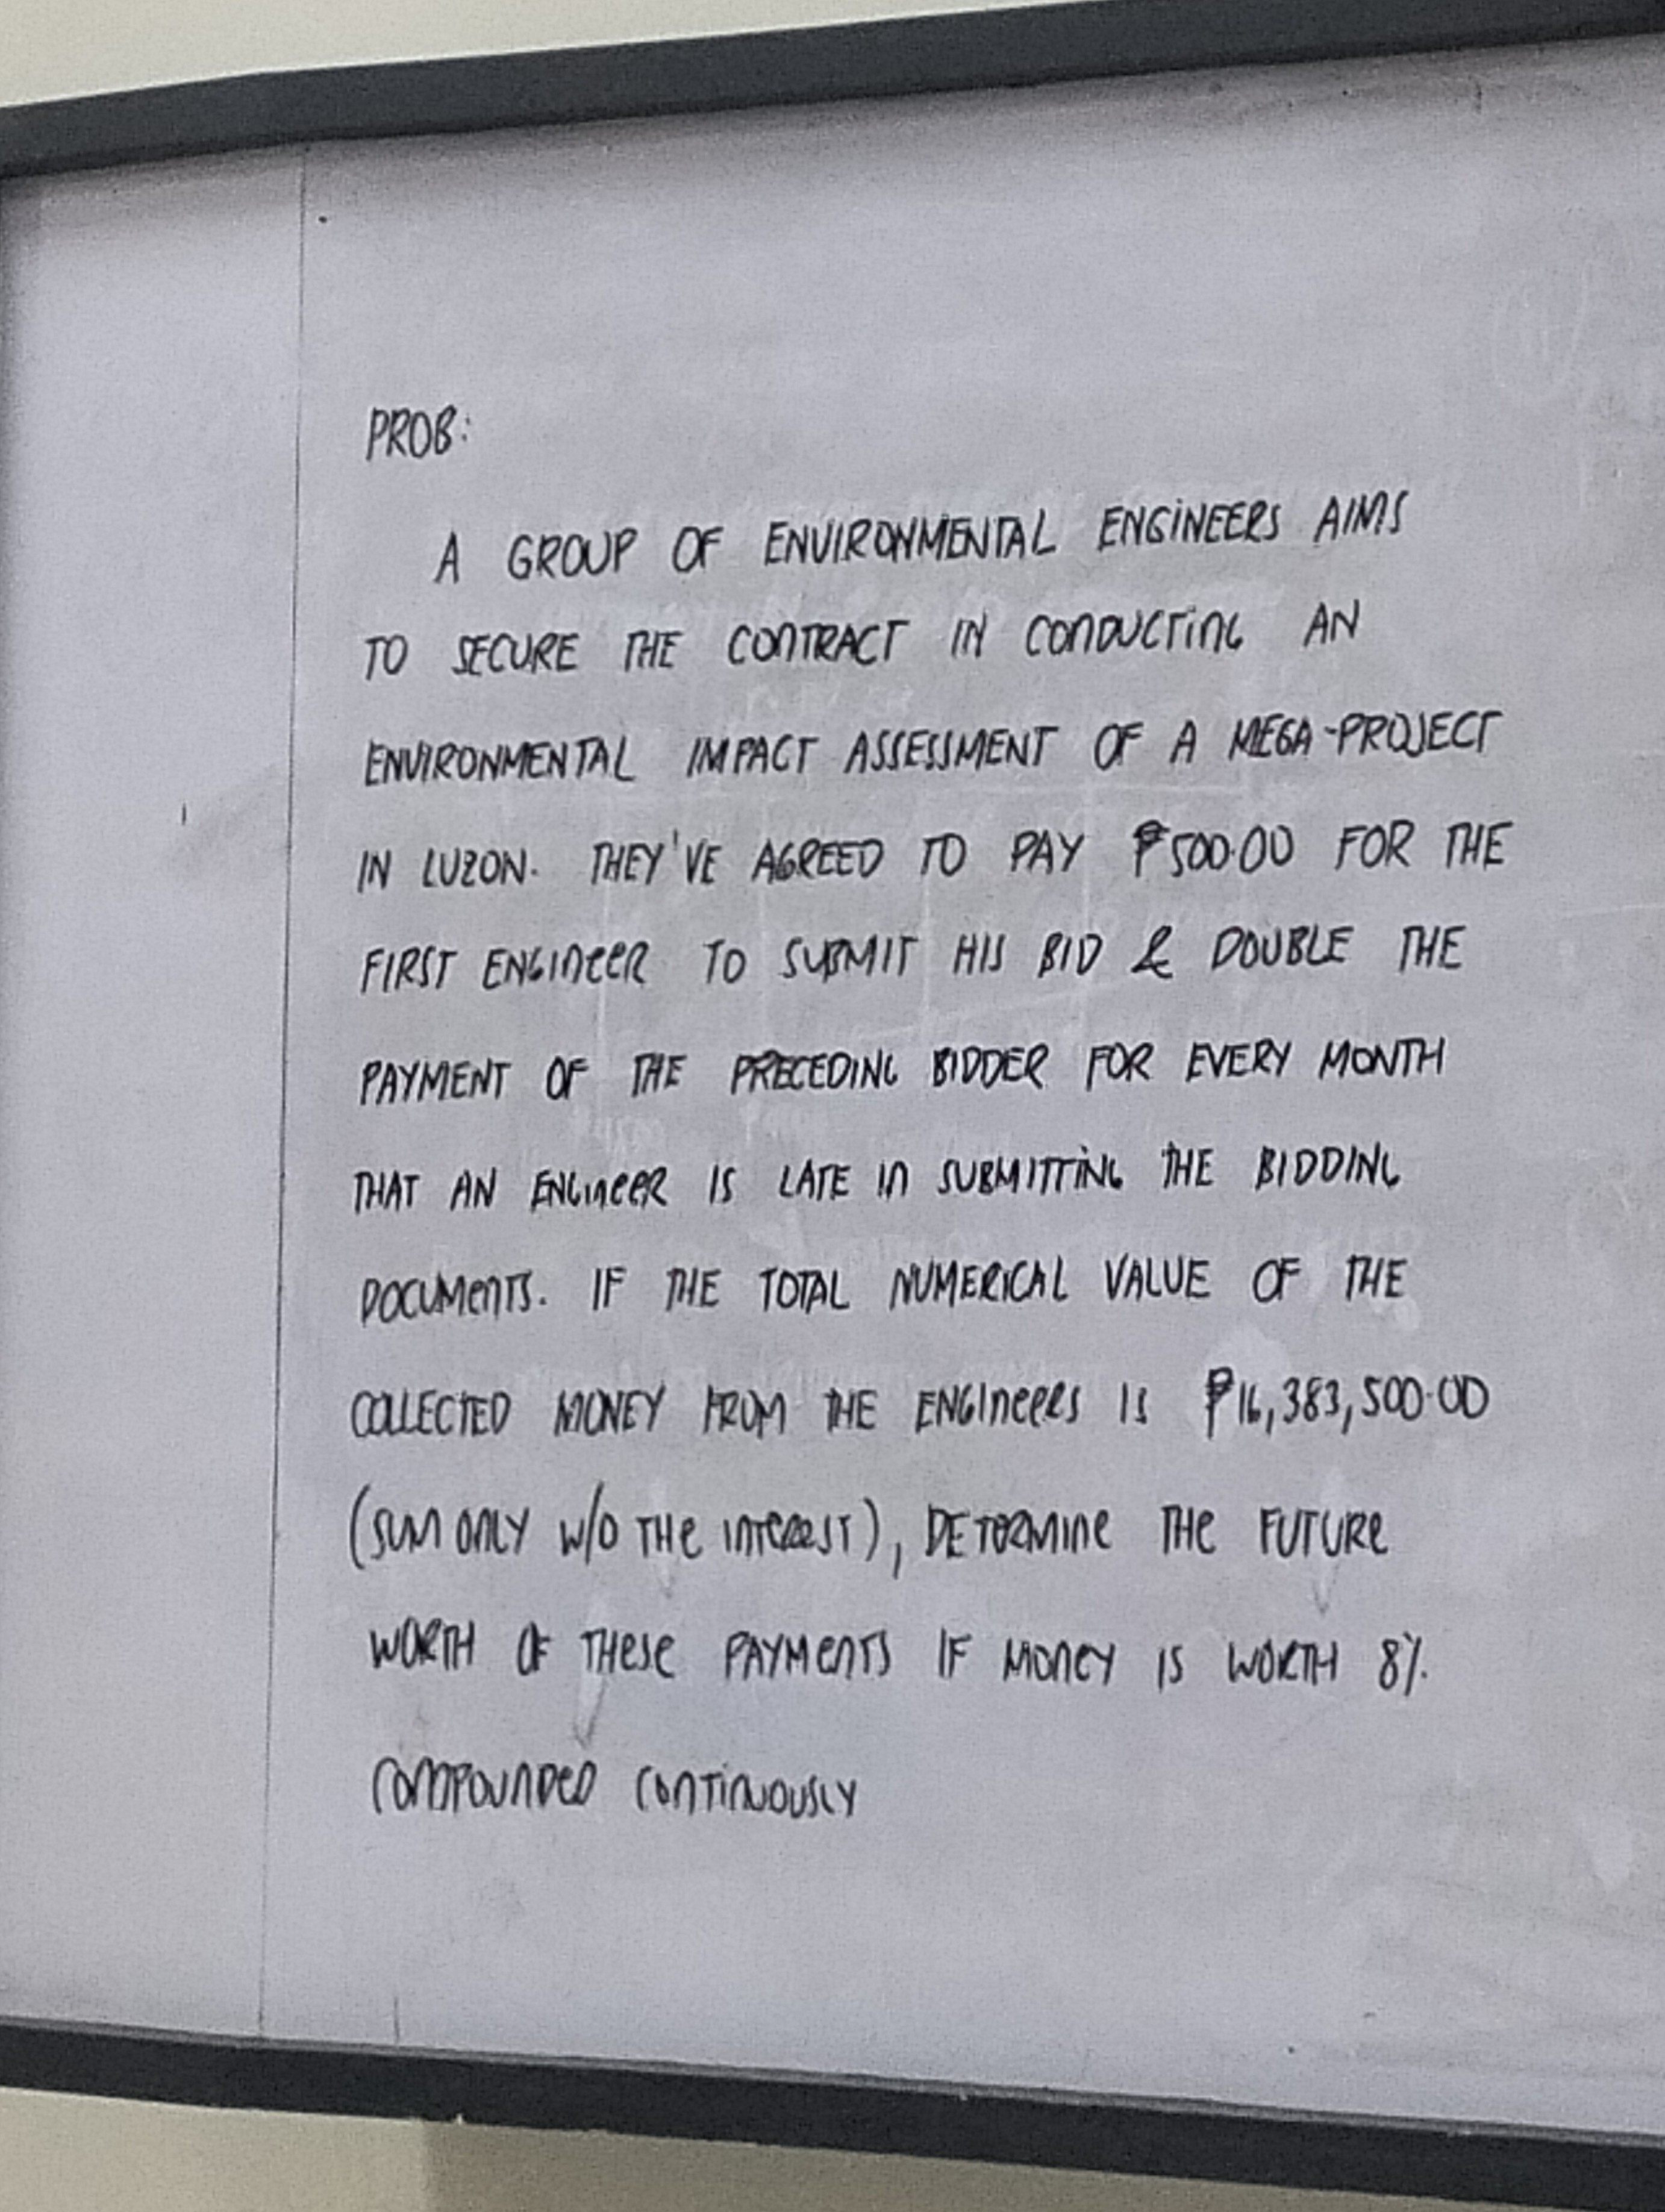 PROB:
A GROUP OF ENVIRONMENTAL ENGINEERS AIMS
TO SECURE THE CONTRACT IN CONDUCTING AN
ENVIRONMENTAL IMPACT ASSESSMENT OF A MEGA-PROJECT
IN LUZON. THEY'VE AGREED TO PAY ₱500.00 FOR THE
FIRST ENGINEER TO SUBMIT HIS BID & DOUBLE THE
PAYMENT OF THE PRECEDING BIDDER FOR EVERY MONTH
THAT AN ENGINEER IS LATE IN SUBMITTING THE BIDDING
DOCUMENTS. IF THE TOTAL NUMERICAL VALUE OF THE
COLLECTED MONEY FROM THE ENGINEERS IS ₱16,383,500.00
(SUM ONLY W/O THE INTEREST), DETERMINE THE FUTURE
WORTH OF THESE PAYMENTS IF MONEY IS WORTH 8%
COMPOUNDED CONTINUOUSLY